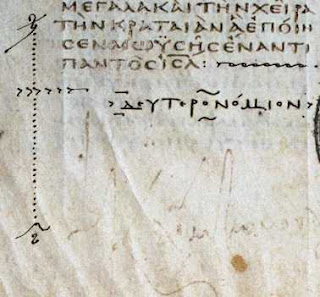 ΜΕΓΑΛΑΚΑΙΤΗΝΧΕΙΡΑ
ΤΗΝΚΡΑΤΑΙΑΝΑΕΠΟΙΗ
ϹΕΝΜΩΥϹΗϹΕΝΑΝΤΙ
ΠΑΝΤΟϹΙϹΛ:
ΔΕΥΤΕΡΟΝΟΜΙΟΝ